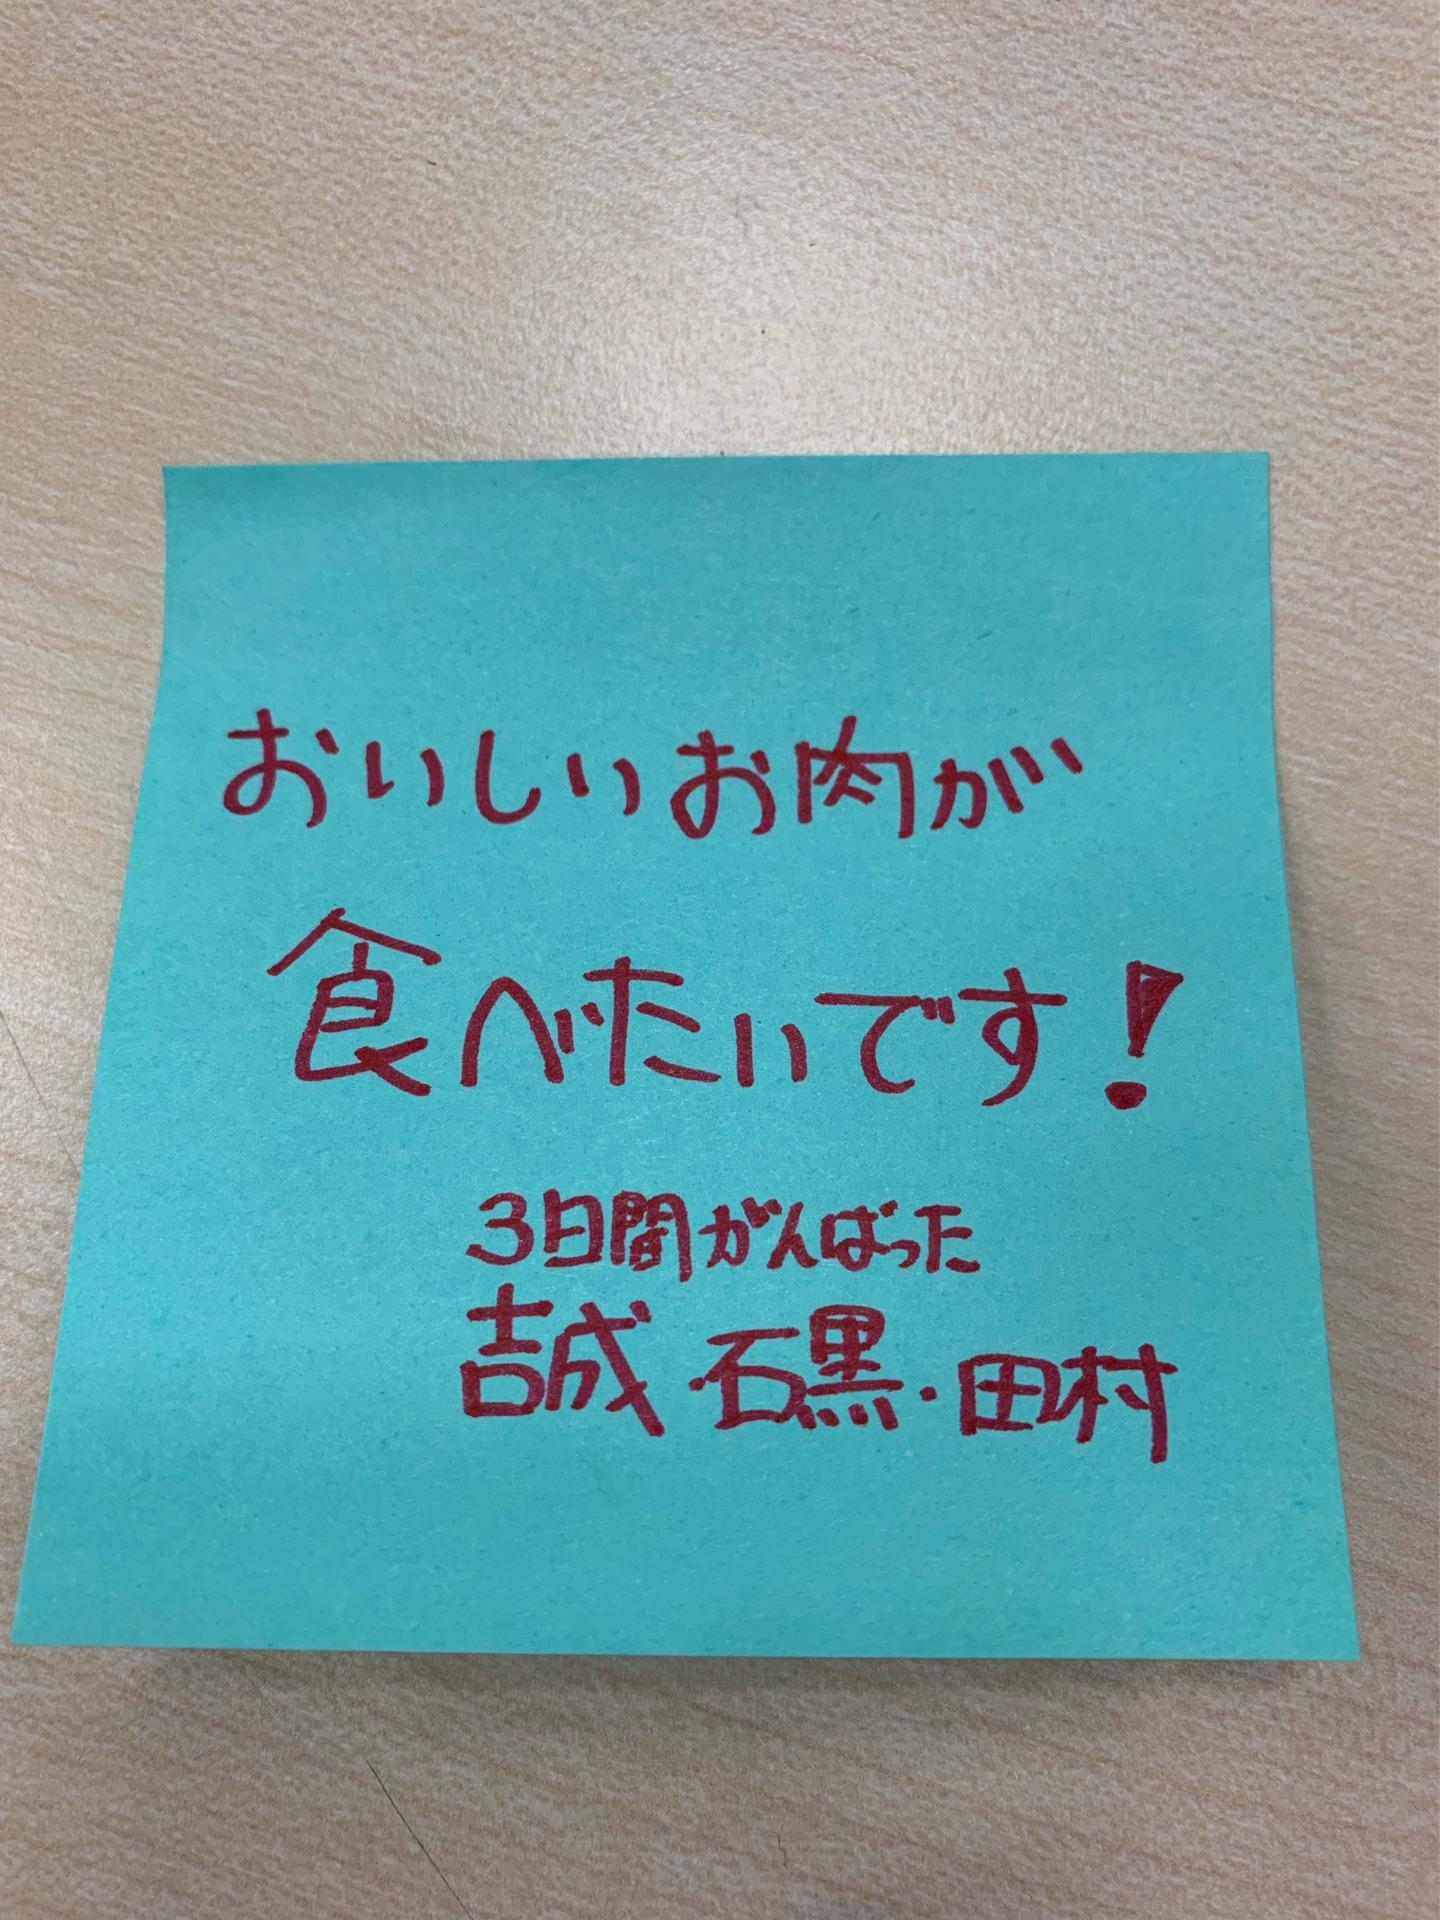 おいしいお肉が
食べたいです!
3日間がんばった
吉成・石黒・田村